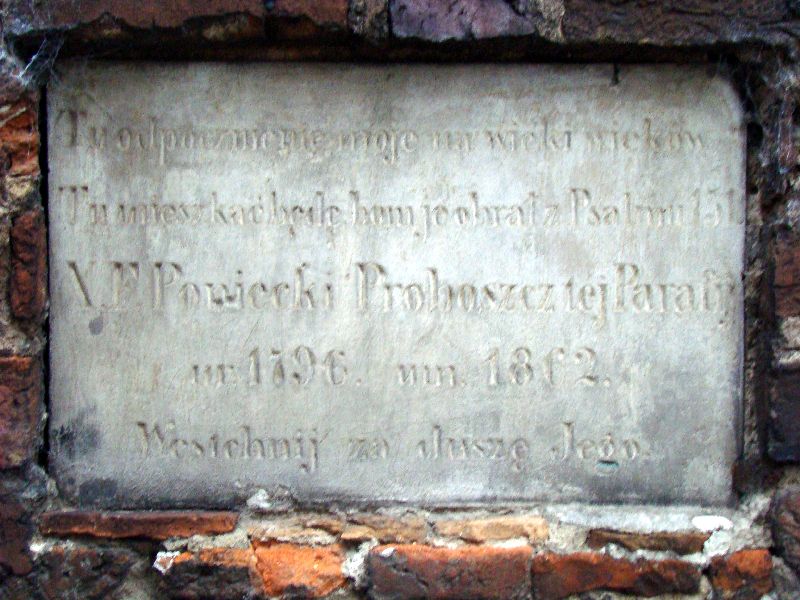 Tu odpocznienie moje na wieki wieków.
Tu mieszkać będę, bom je obrał z Psalmu 131
X. F. Poniecki Proboszcz tej Parafij
ur. 1796. um. 1862.
Westchnij za duszę Jego.